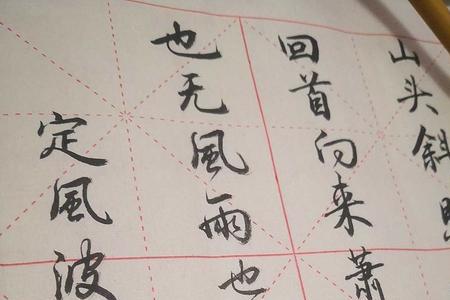 山头斜
回首向来蕭
也无風雨也
定風波